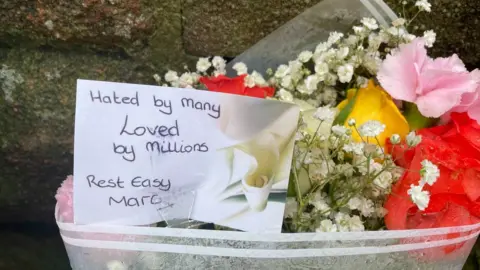 Hated by Many
Loved
by Millions
Rest Easy
Marc